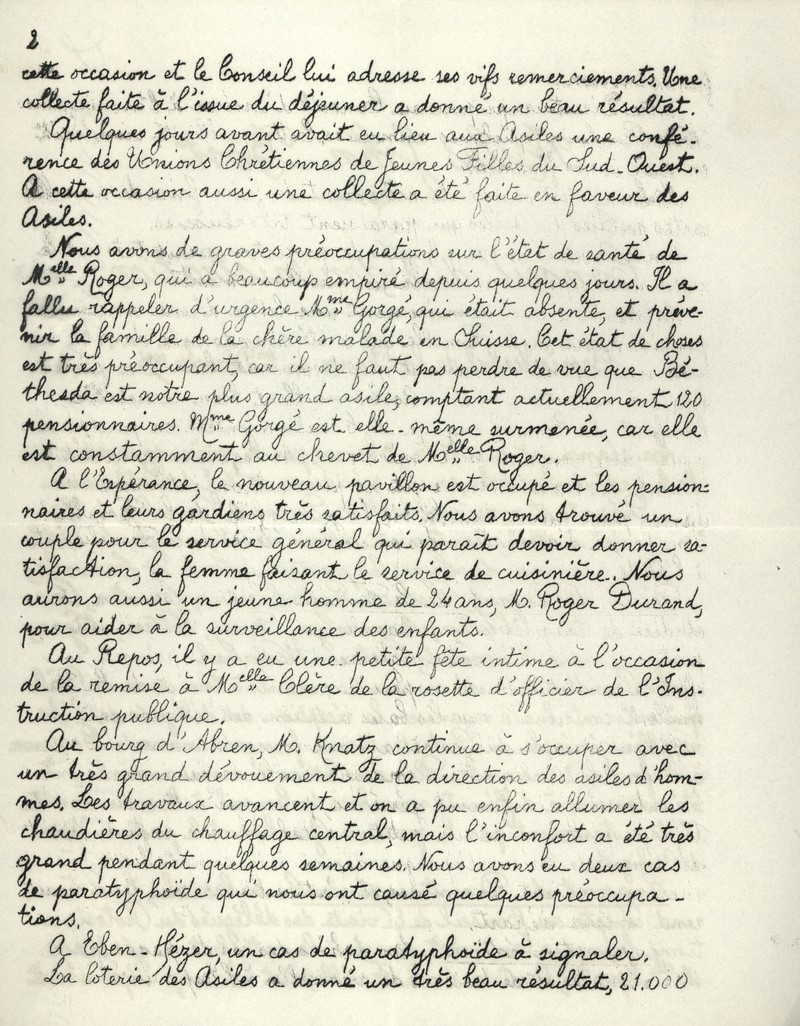 2
cette occasion et le Conseil lui adresse ses vifs remerciements. Une
collecte faite à l'issue du déjeuner a donné un beau résultat.
Quelques jours avant avait eu lieu aux Asiles une confé-
rence des Unions Chrétiennes de Jeunes Filles du Sud-Ouest.
A cette occasion aussi une collecte a été faite en faveur des
Asiles.
Nous avons de graves préoccupations sur l'état de santé de
Melle Roger, qui a beaucoup empiré depuis quelques jours. Il a
fallu rappeler d'urgence Mme Gorgé, qui était absente, et préve-
nir la famille de la chère malade en Suisse. Cet état de choses
est très préoccupant, car il ne faut pas perdre de vue que Bé-
thesda est notre plus grand asile, comptant actuellement 120
pensionnaires. Mme Gorgé est elle-même surmenée, car elle
est constamment au chevet de Melle Roger.
A l'Espérance, le nouveau pavillon est occupé et les pension-
naires et leurs gardiens très satisfaits. Nous avons trouvé un
couple pour le service général qui paraît devoir donner sa-
tisfaction, la femme faisant le service de cuisinière. Nous
aurons aussi un jeune homme de 24 ans, M. Roger Durand,
pour aider à la surveillance des enfants.
Au Repos, il y a eu une petite fête intime à l'occasion
de la remise à Melle Clère de la rosette d'officier de l'Ins-
truction publique.
Au bourg d'Abren, M. Knatz continue à s'occuper avec
un très grand dévouement de la direction des asiles d'hom-
mes. Les travaux avancent et on a pu enfin allumer les
chaudières du chauffage central, mais l'inconfort a été très
grand pendant quelques semaines. Nous avons eu deux cas
de paratyphoïde qui nous ont causé quelques préoccupa-
tions.
A Eben-Hézer, un cas de paratyphoïde à signaler.
La loterie des Asiles a donné un très beau résultat, 21.000